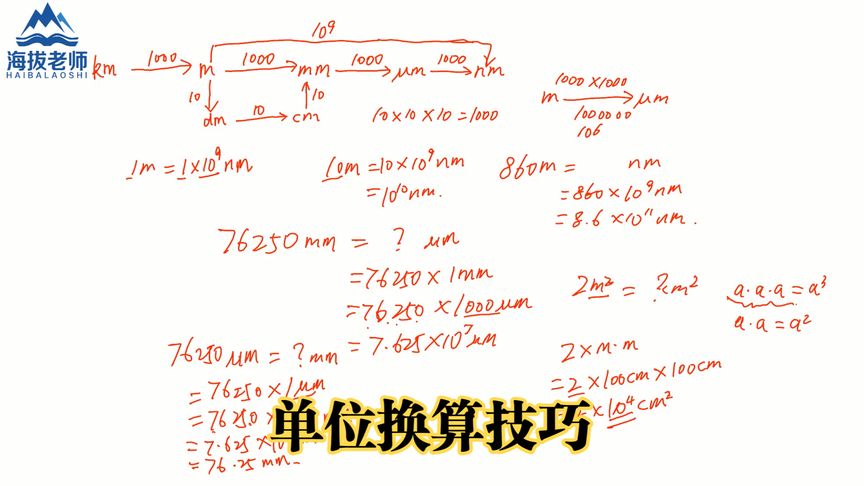 海拔老师
HAIBALAOSHI
10⁹
km 1000 m 1000 mm 1000 μm 1000 nm
10 dm 10 cm 10
10×10×10=1000
m 1000×1000 μm
1000000
10⁶
1m=1×10⁹nm
10m=10×10⁹nm
=10¹⁰nm.
860m= nm
=860×10⁹nm
=8.6×10¹¹nm.
76250mm = ? μm
=76250×1mm
=76250×1000μm
=7.625×10⁷μm
2m² = ?cm²
a·a·a=a³
a·a=a²
2×m·m
=2×100cm×100cm
×10⁴cm²
76250μm=?mm
=76250×1μm
=76250×
=7.625×10
=76.25mm
单位换算技巧